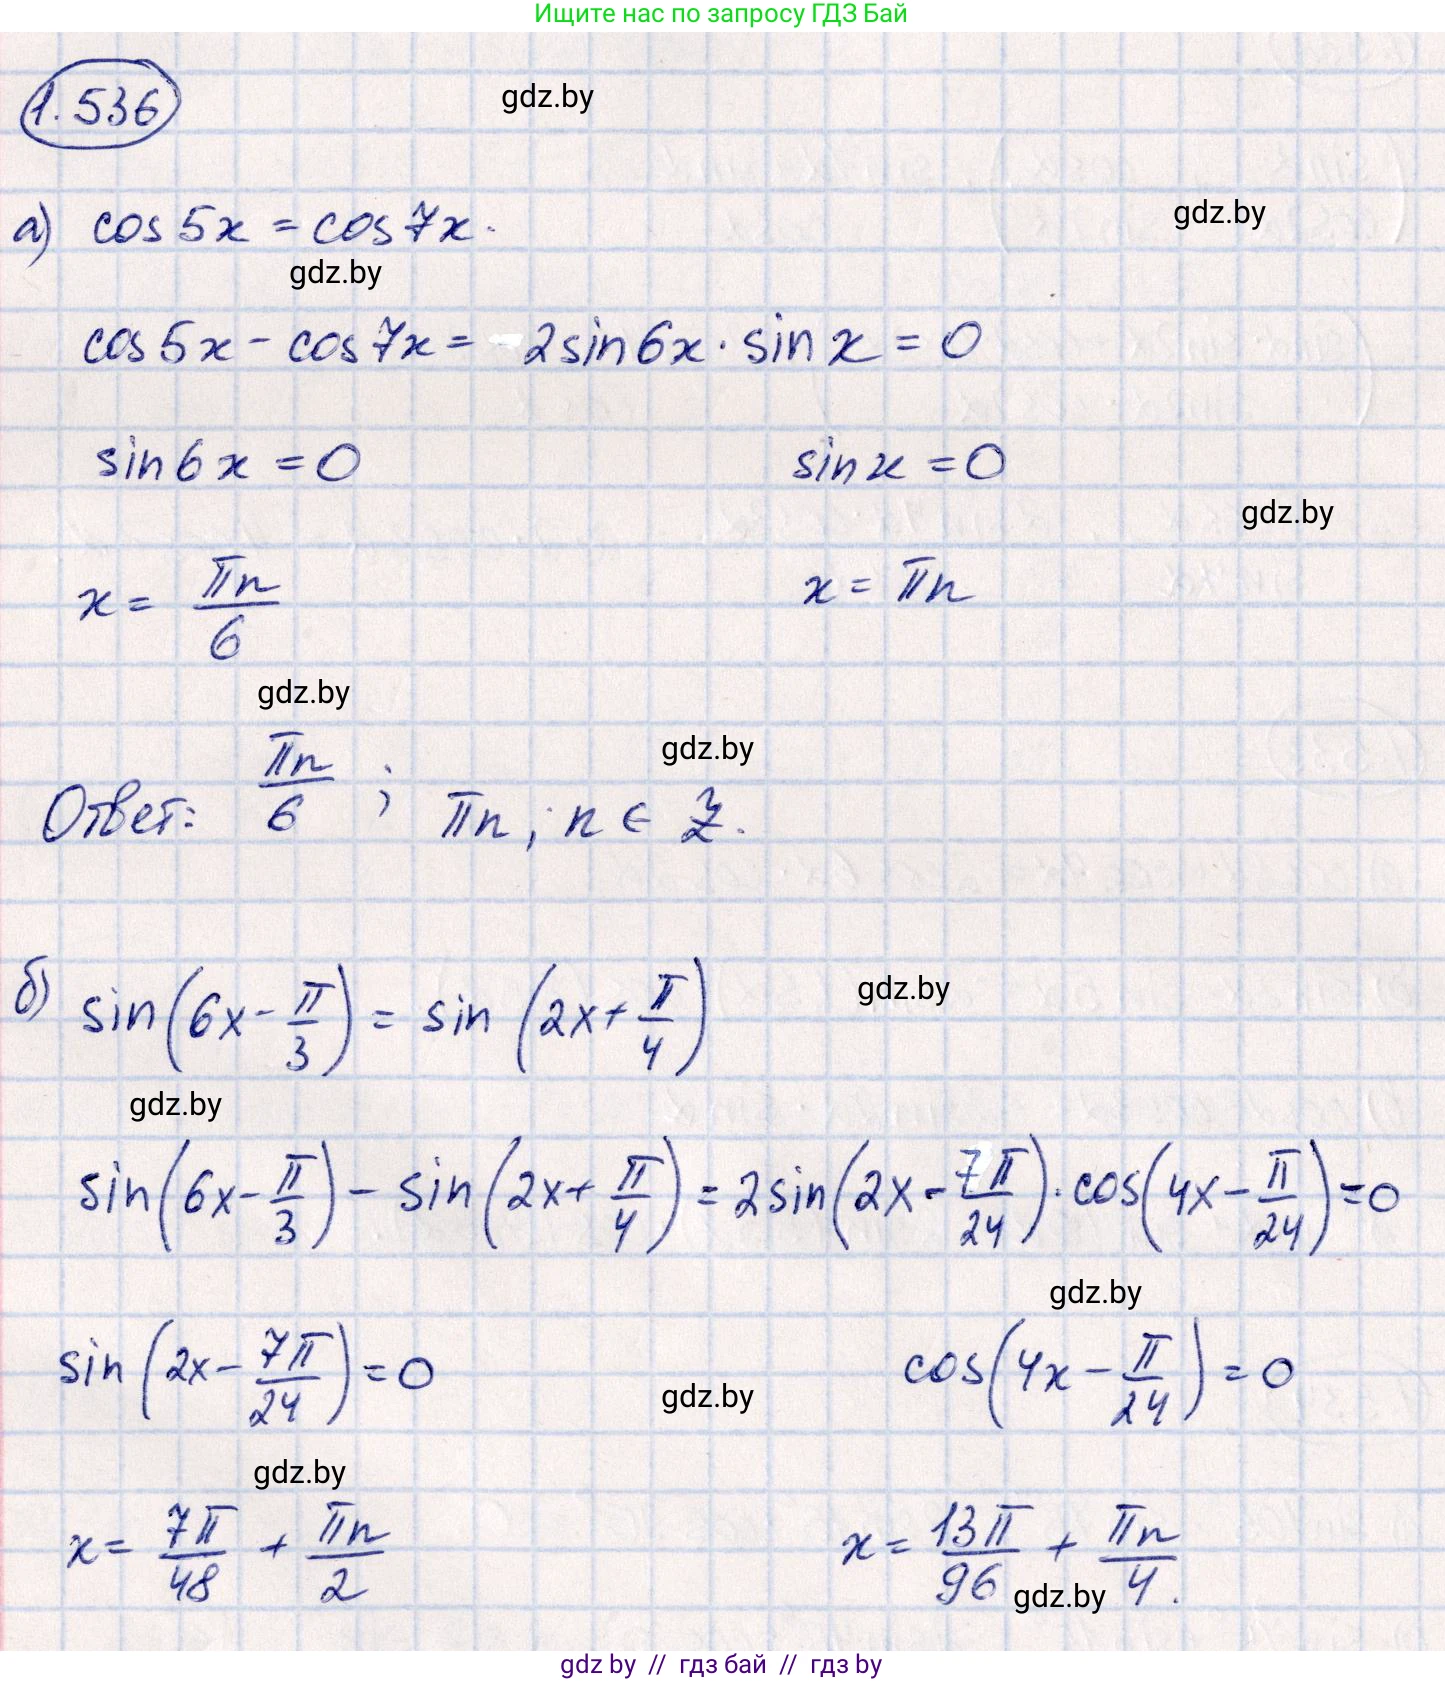 Ищите нас по запросу ГДЗ Бай
1.536
gdz.by
а) cos5x = cos7x.
gdz.by
gdz.by
cos5x - cos7x = - 2sin6x · sin x = 0
sin6x = 0    sinx = 0
gdz.by
x = πn/6    x = πn
gdz.by
gdz.by
Ответ: πn/6 ; πn ; n ∈ Z.
б) sin(6x - π/3) = sin(2x + π/4)
gdz.by
gdz.by
sin(6x - π/3) - sin(2x + π/4) = 2sin(2x - 7π/24) · cos(4x - π/24) = 0
gdz.by
sin(2x - 7π/24) = 0    cos(4x - π/24) = 0
gdz.by
gdz.by
x = 7π/48 + πn/2    x = 13π/96 + πn/4.
gdz.by
gdz by // гдз бай // гдз by